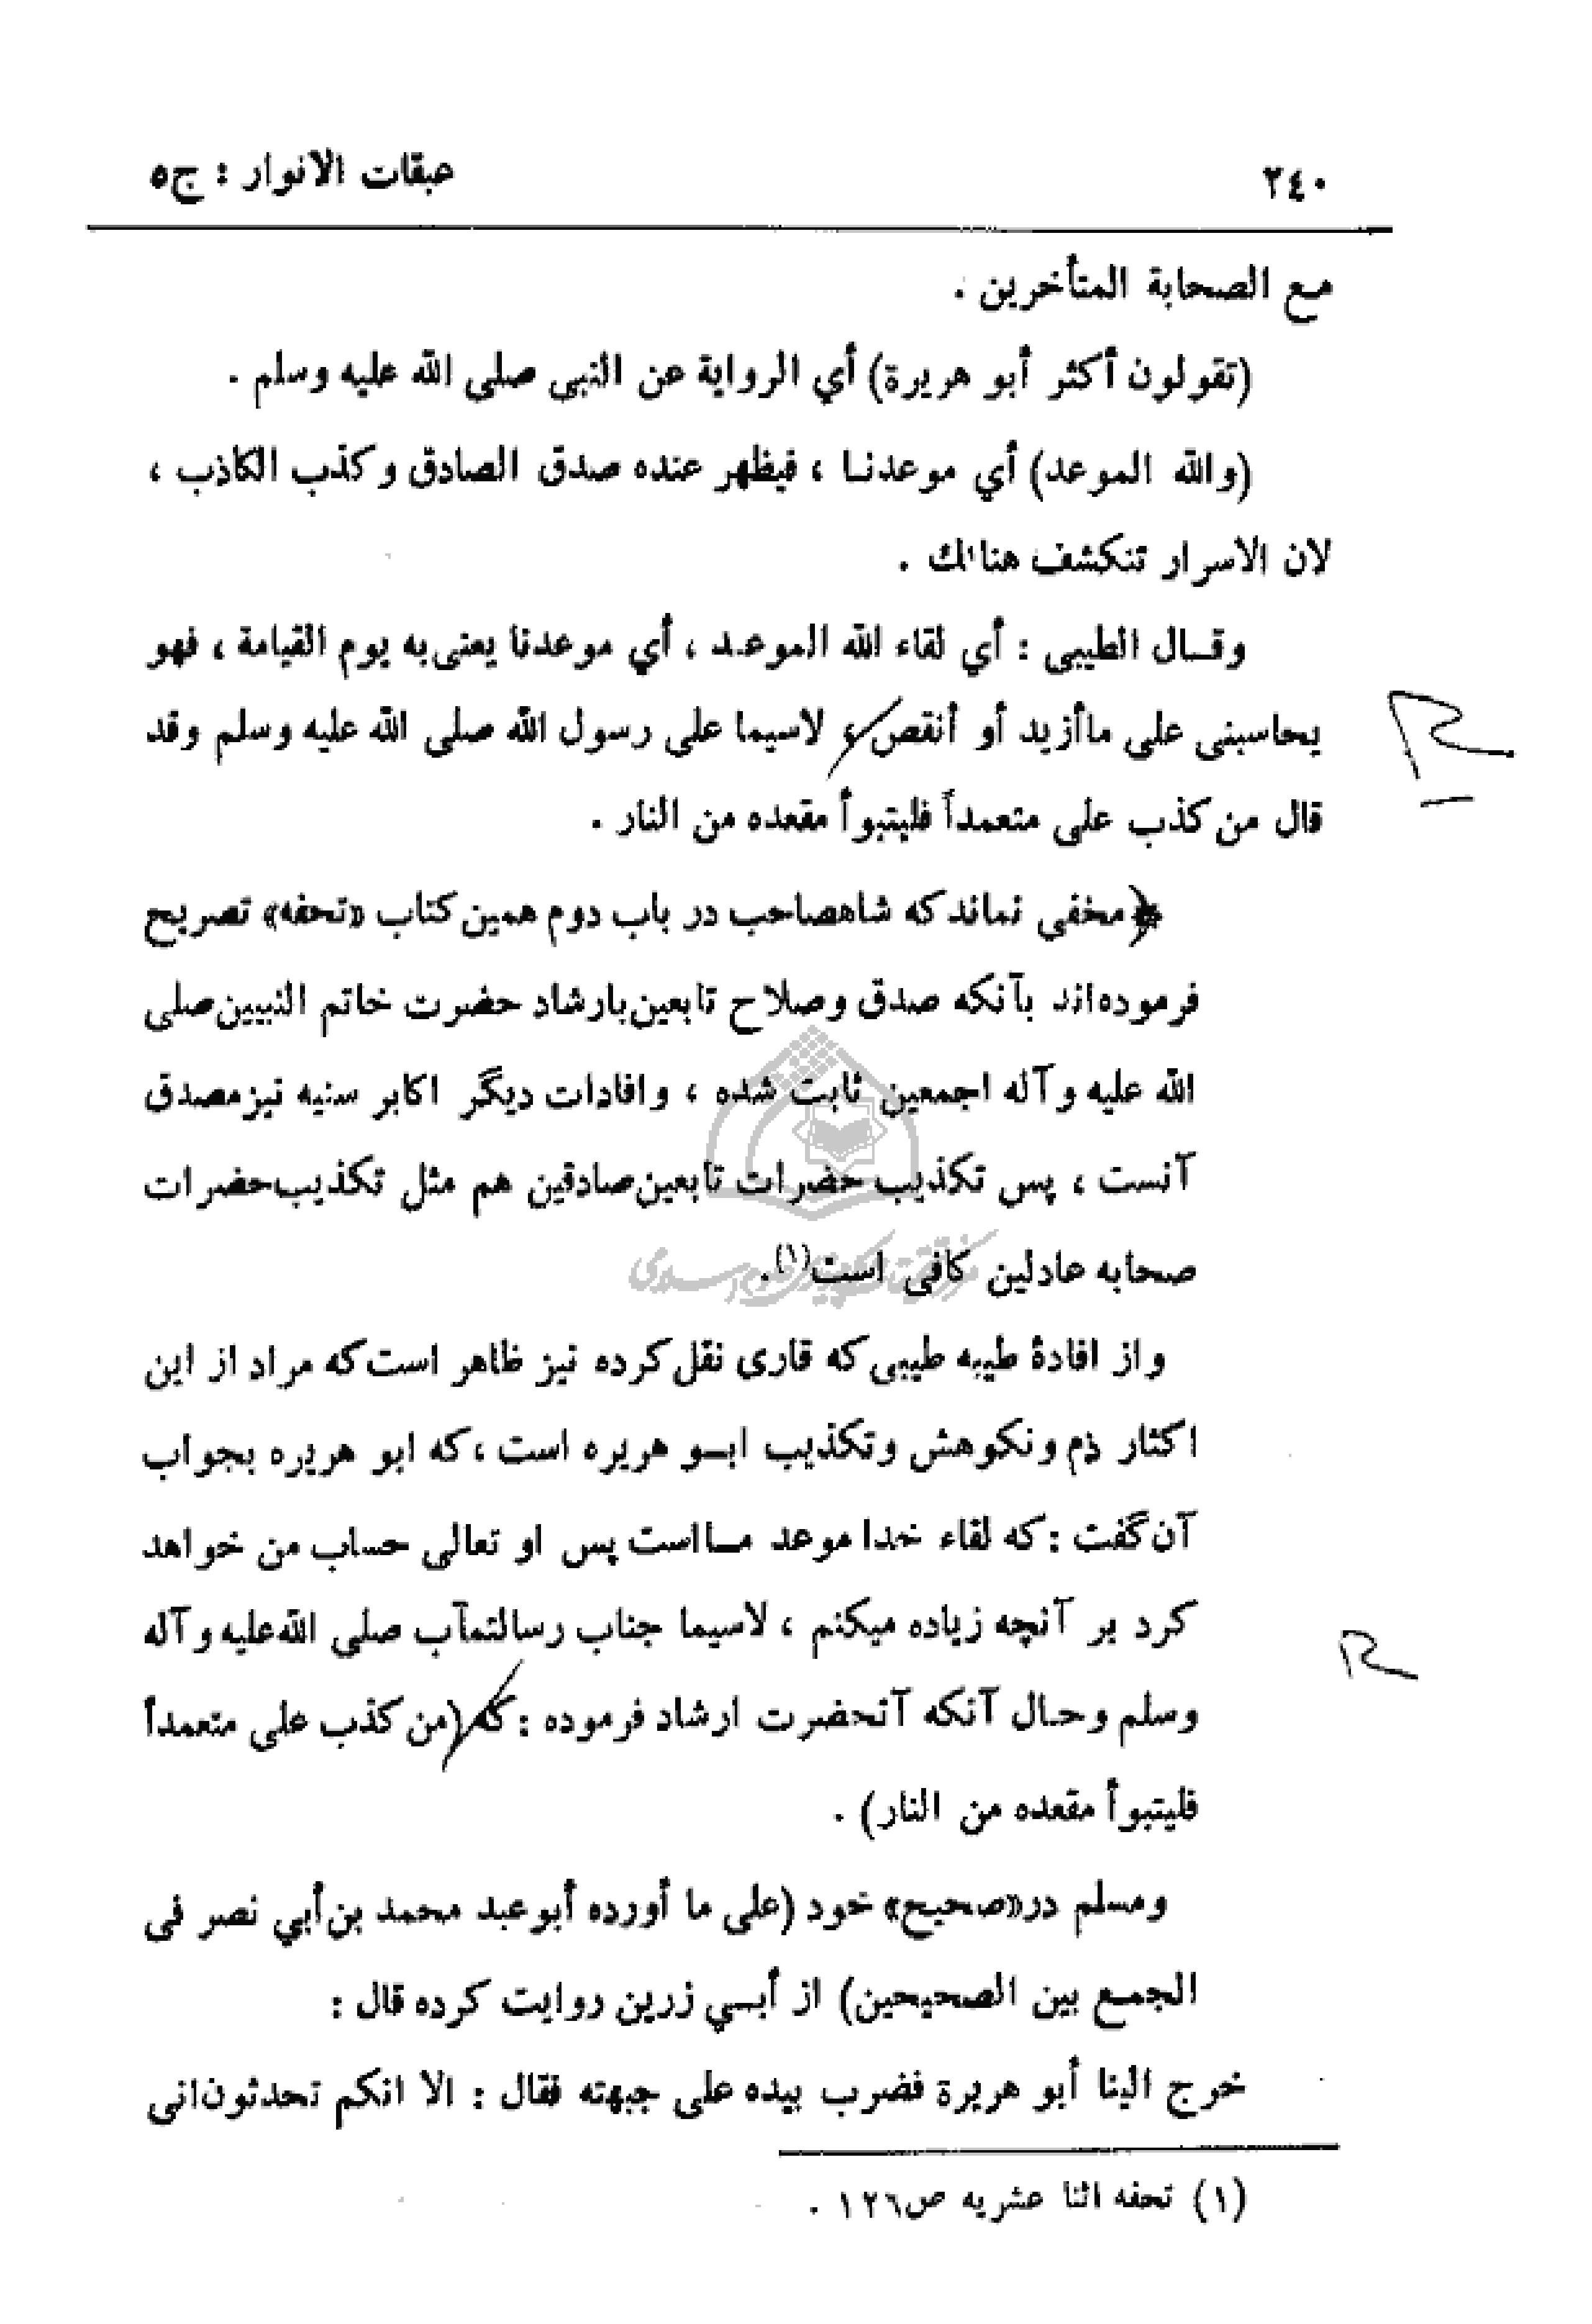 ٢٤٠ عبقات الانوار : ج٥
مع الصحابة المتأخرين .
(تقولون أكثر أبو هريرة) أي الرواية عن النبى صلى الله عليه وسلم .
(والله الموعد) أي موعدنـا ، فيظهر عنده صدق الصادق وكذب الكاذب ،
لان الاسرار تنكشف هنالك .
وقـال الطيبى : أي لقاء الله الموعـد ، أي موعدنا يعنى به يوم القيامة ، فهو
يحاسبنى على ماأزيد أو أنقص ، لاسيما على رسول الله صلى الله عليه وسلم وقد
قال من كذب على متعمداً فليتبوأ مقعده من النار .
﴿مخفى نماند كه شاهصاحب در باب دوم همين كتاب «تحفه» تصريح
فرموده‌اند بآنكه صدق وصلاح تابعين بارشاد حضرت خاتم النبيين صلى
الله عليه وآله اجمعين ثابت شده ، وافادات ديگر اكابر سنيه نيز مصدق
آنست ، پس تكذيب حضرات تابعين صادقين هم مثل تكذيب حضرات
صحابه عادلين كافى است(١).
واز افادۀ طيبه طيبى كه قارى نقل كرده نيز ظاهر است كه مراد از اين
اكثار ذم ونكوهش وتكذيب ابـو هريره است ، كه ابو هريره بجواب
آن گفت : كه لقاء خدا موعد مـااست پس او تعالى حساب من خواهد
كرد بر آنچه زياده ميكنم ، لاسيما جناب رسالتمآب صلى الله عليه وآله
وسلم وحـال آنكه آنحضرت ارشاد فرموده : كه (من كذب على متعمداً
فليتبوأ مقعده من النار) .
ومسلم در «صحيح» خود (على ما أورده أبوعبد محمد بن أبي نصر فى
الجمـع بين الصحيحين) از أبـي زرين روايت كرده قال :
خرج الينا أبو هريرة فضرب بيده على جبهته فقال : الا انكم تحدثون انى
(١) تحفه اثنا عشريه ص١٢٦ .